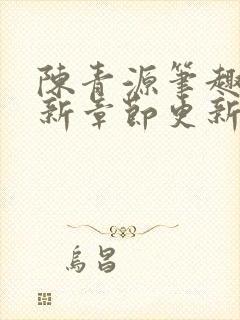 陳青源筆趣
新章節更新
烏昌